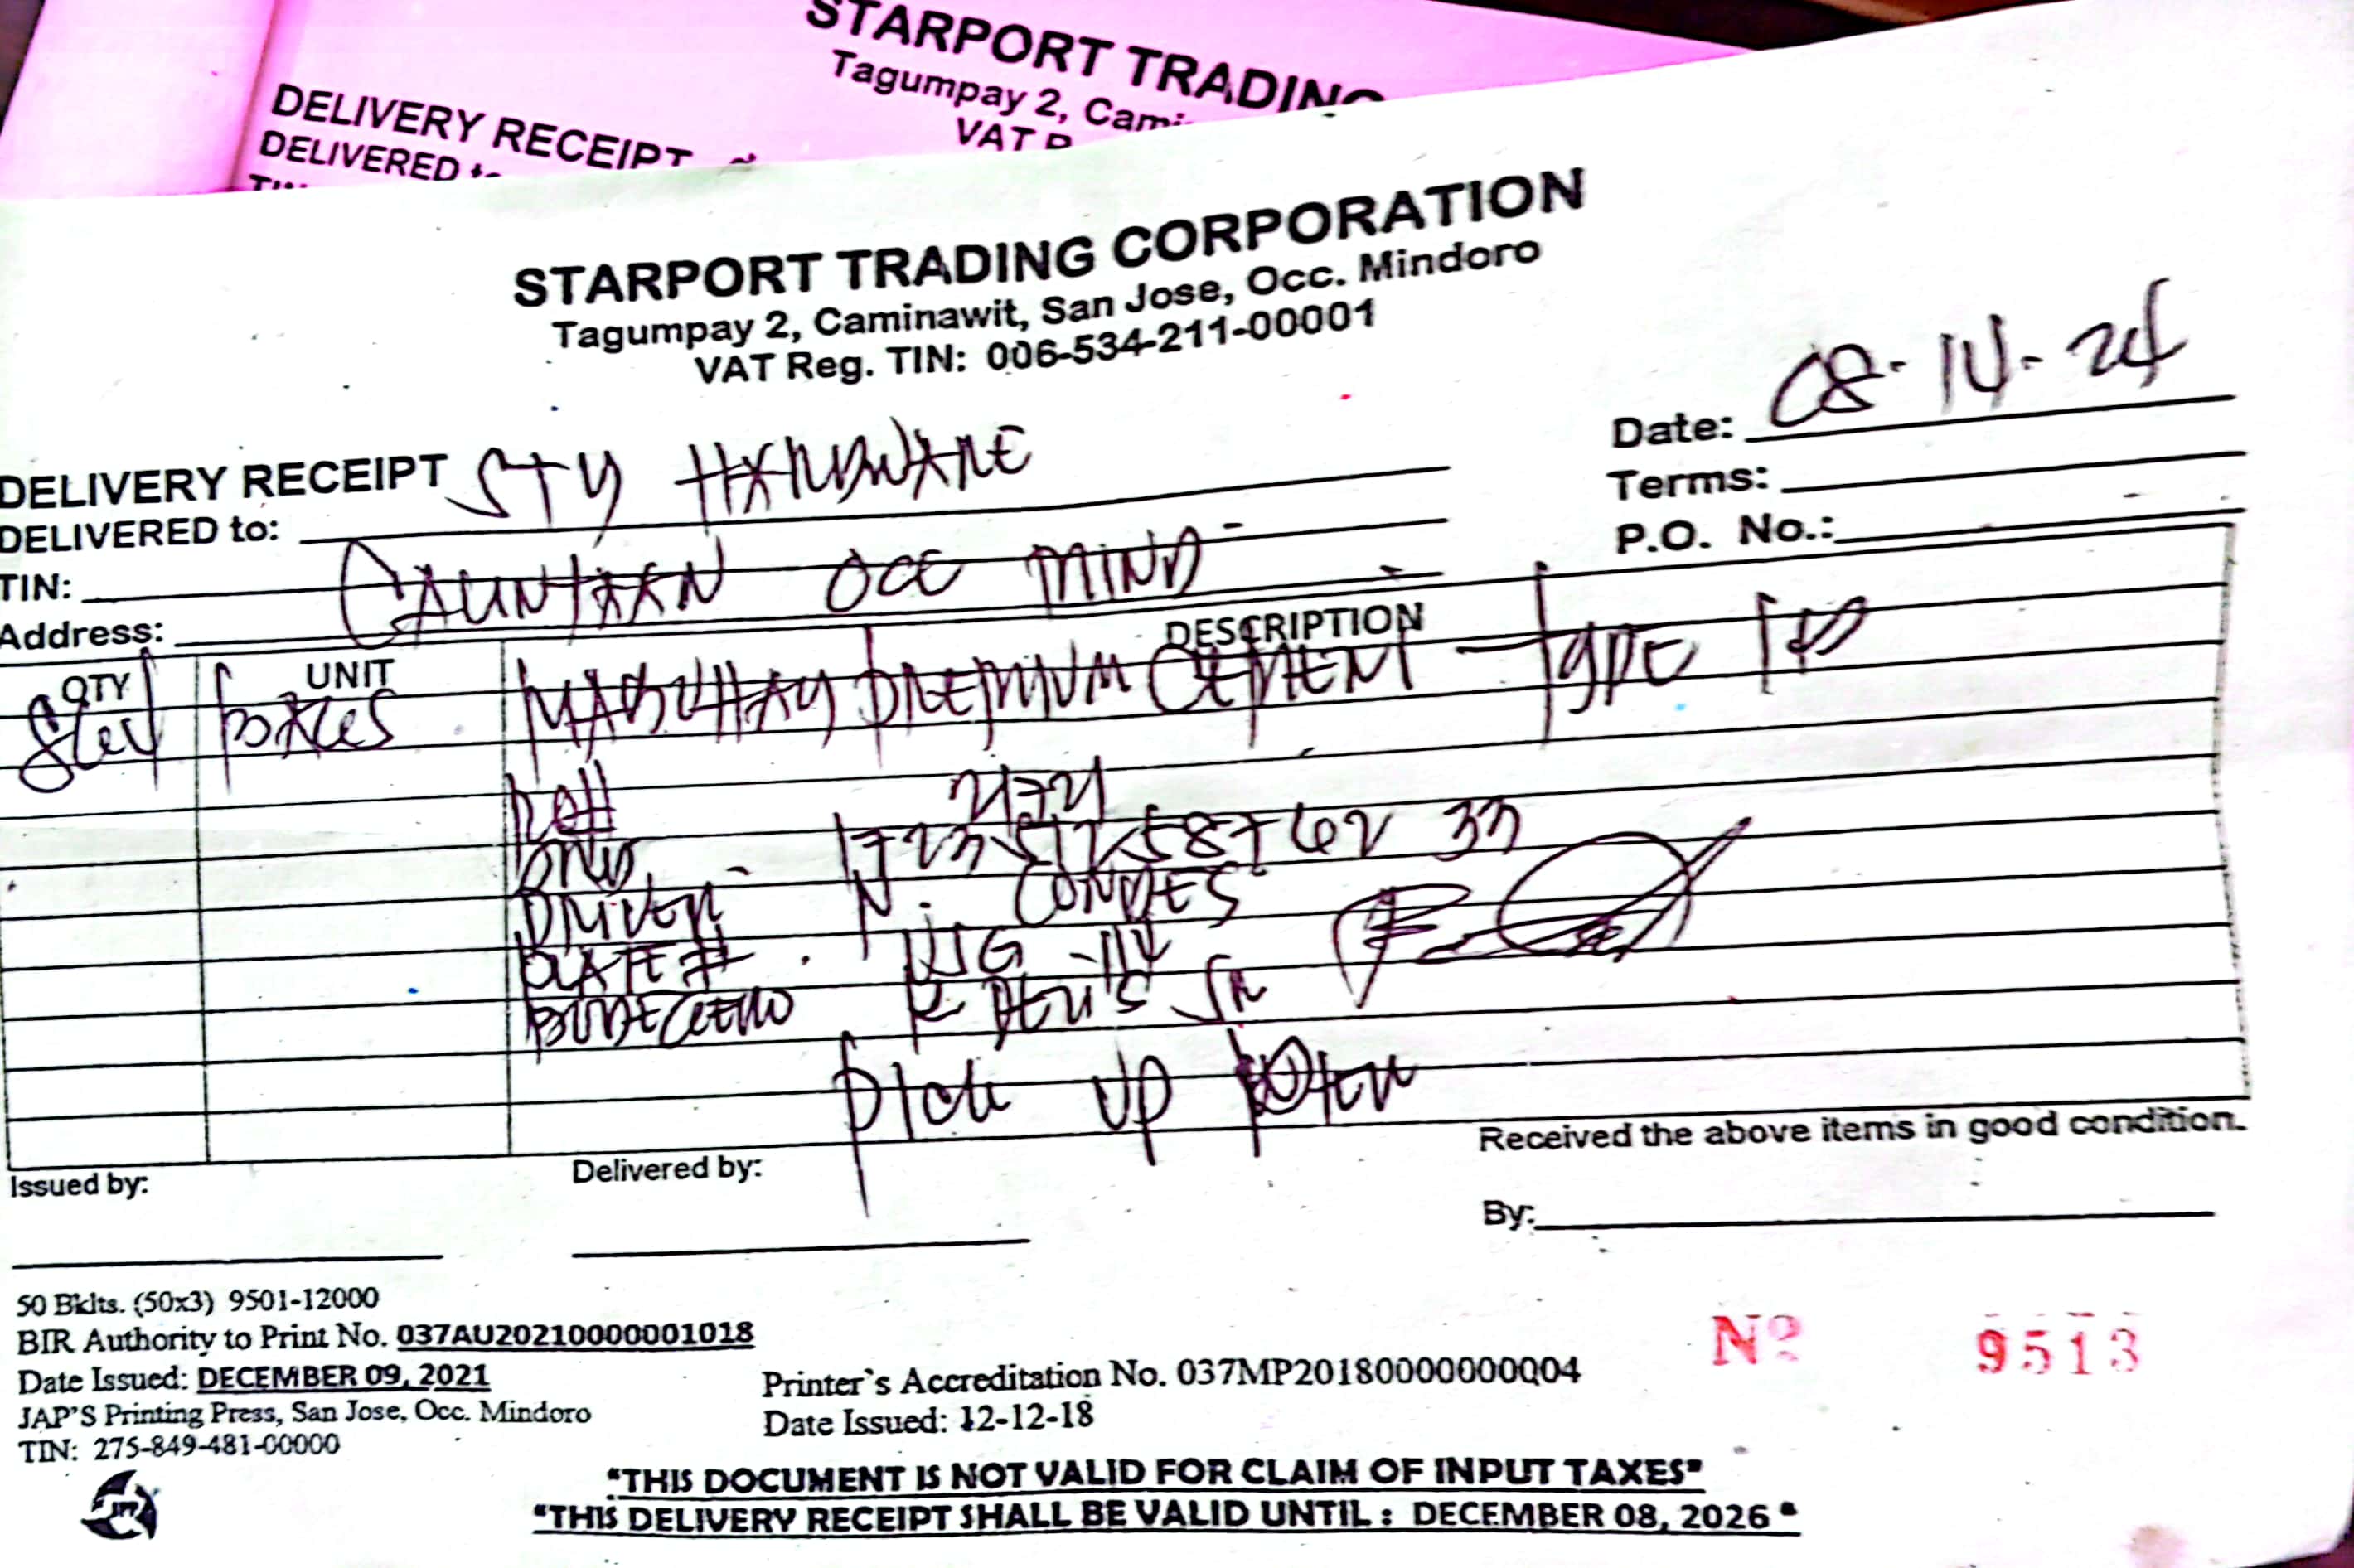 STARPORT TRADING
Tagumpay 2, Cami
VAT R
DELIVERY RECEIPT
DELIVERED to
TIN
STARPORT TRADING CORPORATION
Tagumpay 2, Caminawit, San Jose, Occ. Mindoro
VAT Reg. TIN: 006-534-211-00001
Date: 08-14-24
DELIVERY RECEIPT
DELIVERED to: STY HARDWARE
Terms:
TIN:
P.O. No.:
Address: CALINTAAN OCC MIND
QTY UNIT DESCRIPTION
MABUHAY PREMIUM CEMENT - Type 1P
DRIVER N.
PLATE #
BODEGERO
Pick up
Issued by: Delivered by: Received the above items in good condition.
By:
50 Bklts. (50x3) 9501-12000
BIR Authority to Print No. 037AU20210000001018
Date Issued: DECEMBER 09, 2021
JAP'S Printing Press, San Jose, Occ. Mindoro
TIN: 275-849-481-00000
Printer's Accreditation No. 037MP20180000000004
Date Issued: 12-12-18
Nº 9513
"THIS DOCUMENT IS NOT VALID FOR CLAIM OF INPUT TAXES"
"THIS DELIVERY RECEIPT SHALL BE VALID UNTIL : DECEMBER 08, 2026"